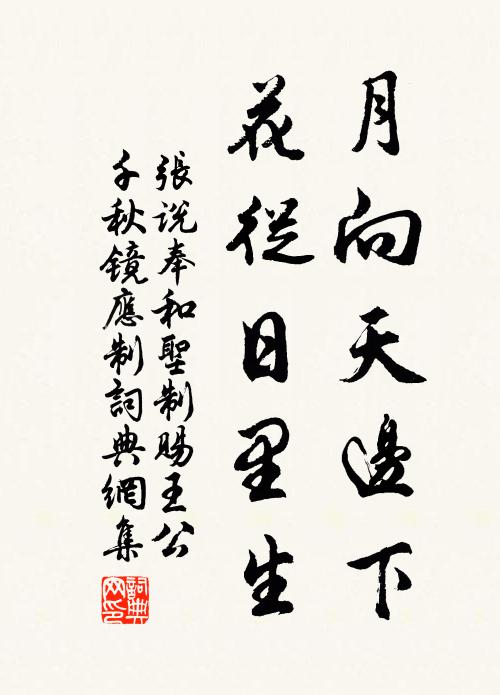 月向天邊下
花從日里生
張說奉和聖制賜王公
千秋鏡應制詞典網集
詞典
網印